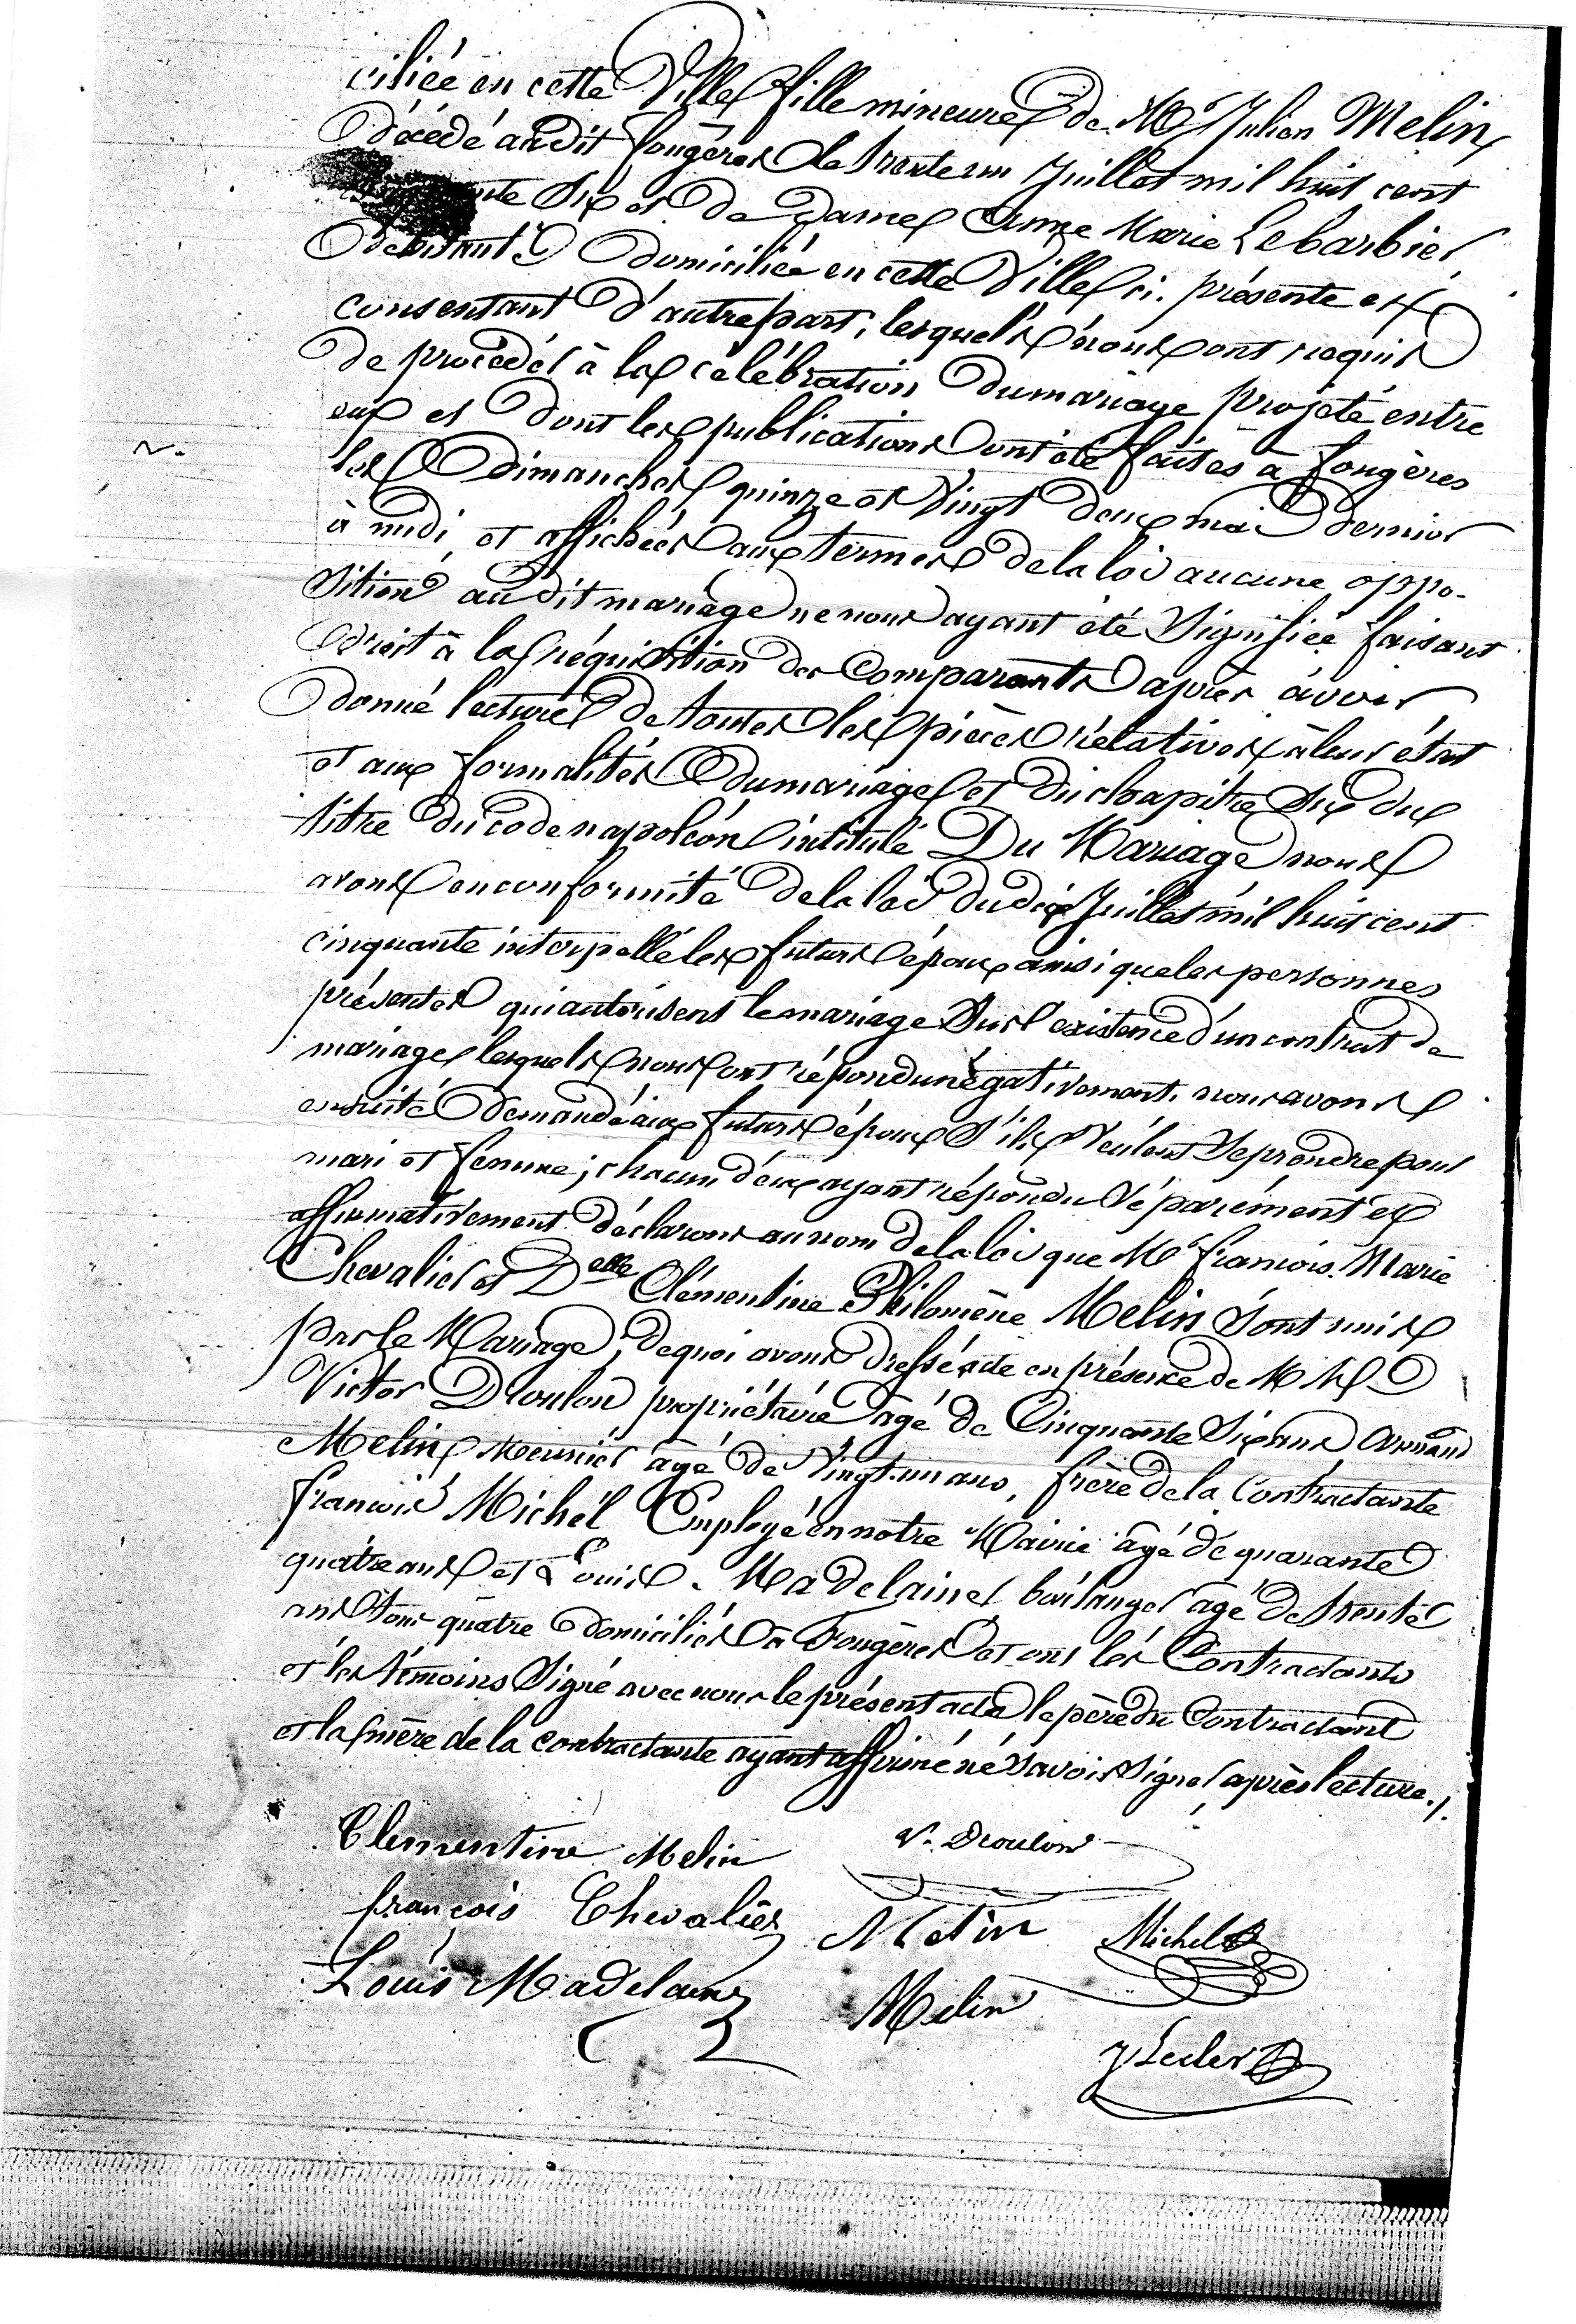 ciliée en cette Ville fille mineure de Mr Julien Melin
décédé audit fougères le trente un Juillet mil huit cent
six et de dame Anne Marie Lebarbier
débitante domiciliée en cette Ville ci. présente et
consentant d'autre part; lesquels nous ont requis
de procéder à la célébration du mariage projeté entre
eux et dont les publications ont été faites à fougères
les dimanches quinze et Vingt deux mai dernier
à midi, et affichées aux termes de la loi aucune oppo-
sition au dit mariage ne nous ayant été Signifiée faisant
droit à la réquisition des Comparants après avoir
donné lecture de toutes les pièces relatives à leur état
et aux formalités du mariage et du chapitre Six du
titre du code napoléon intitulé Du Mariage nous
avons en conformité de la loi du dix Juillet mil huit cent
cinquante interpellé les futurs époux ainsi que les personnes
présentes qui autorisent le mariage Sur l'existence d'un contrat de
mariage lesquels nous ont répondu négativement, nous avons
ensuite demandé aux futurs époux S'ils Veulent Se prendre pour
mari et femme; chacun d'eux ayant répondu Séparément et
affirmativement déclarons au nom de la loi que Mr francois. Marie
Chevalier et Delle Clémentine Philomène Melin Sont unis
par le Mariage; de quoi avons dressé acte en présence de M M
Victor Droulon propriétaire âgé de Cinquante Six ans Armand
Melin Meunier âgé de Vingt-un ans, frère de la Contractante
francois Michel Employé en notre Mairie âgé de quarante
quatre ans et Louis. Madelaine boulanger âgé de trente
ans tous quatre domiciliés à Fougères et ont les Contractants
et les témoins Signé avec nous le présent acte le père du Contractant
et la mère de la contractante ayant affirmé ne Savoir Signer après lecture./.
Clementine Melin
V. Droulon
françois Chevalier
Melin
Michel
Louis Madelaine
Melin
J Leclerc